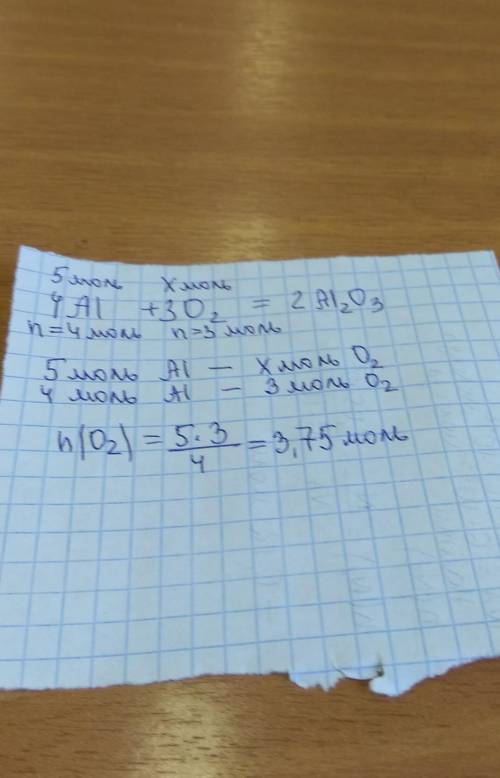 5 моль х моль
4Al + 3O₂ = 2Al₂O₃
n=4 моль n=3 моль
5 моль Al — х моль O₂
4 моль Al — 3 моль O₂
n(O₂) = 5·3/4 = 3,75 моль